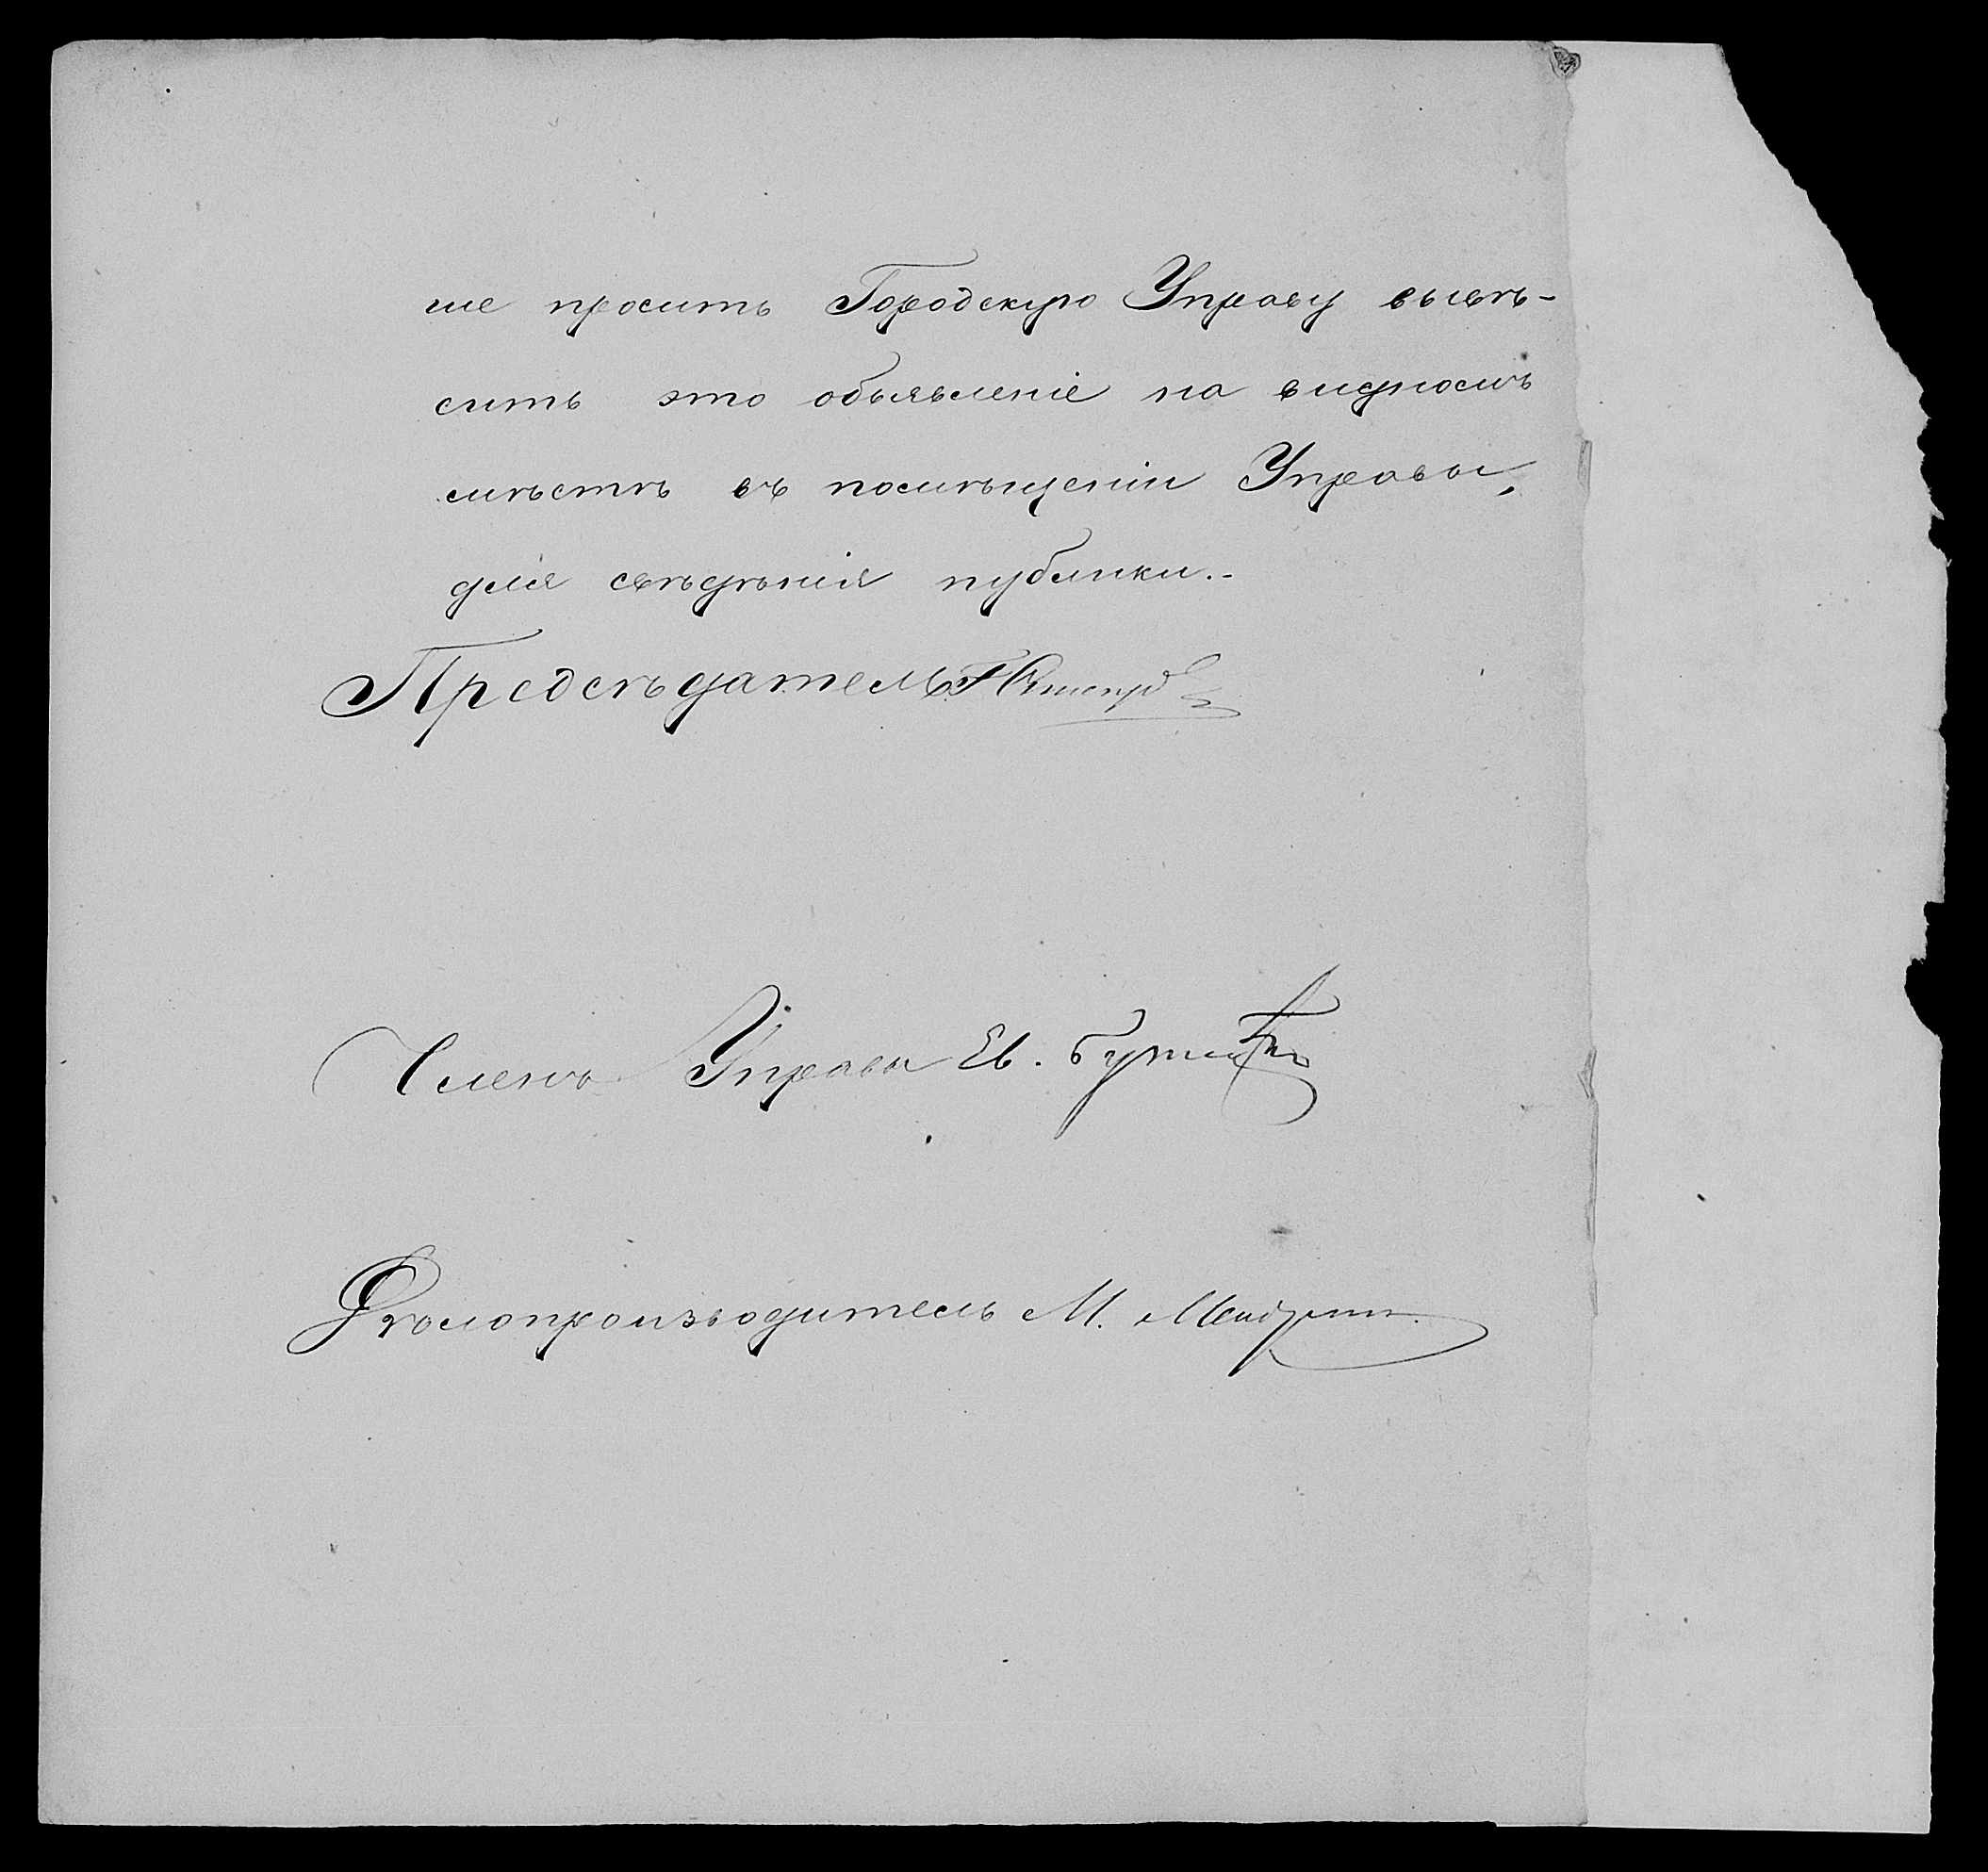 ше просить Городскую Управу вывѣ-
сить это объявленіе на видномъ
мѣстѣ въ помѣщеніи Управы,
для свѣдѣнія публики.-
Предсѣдатель
Членъ Управы Ев.
Дѣлопроизводитель М.